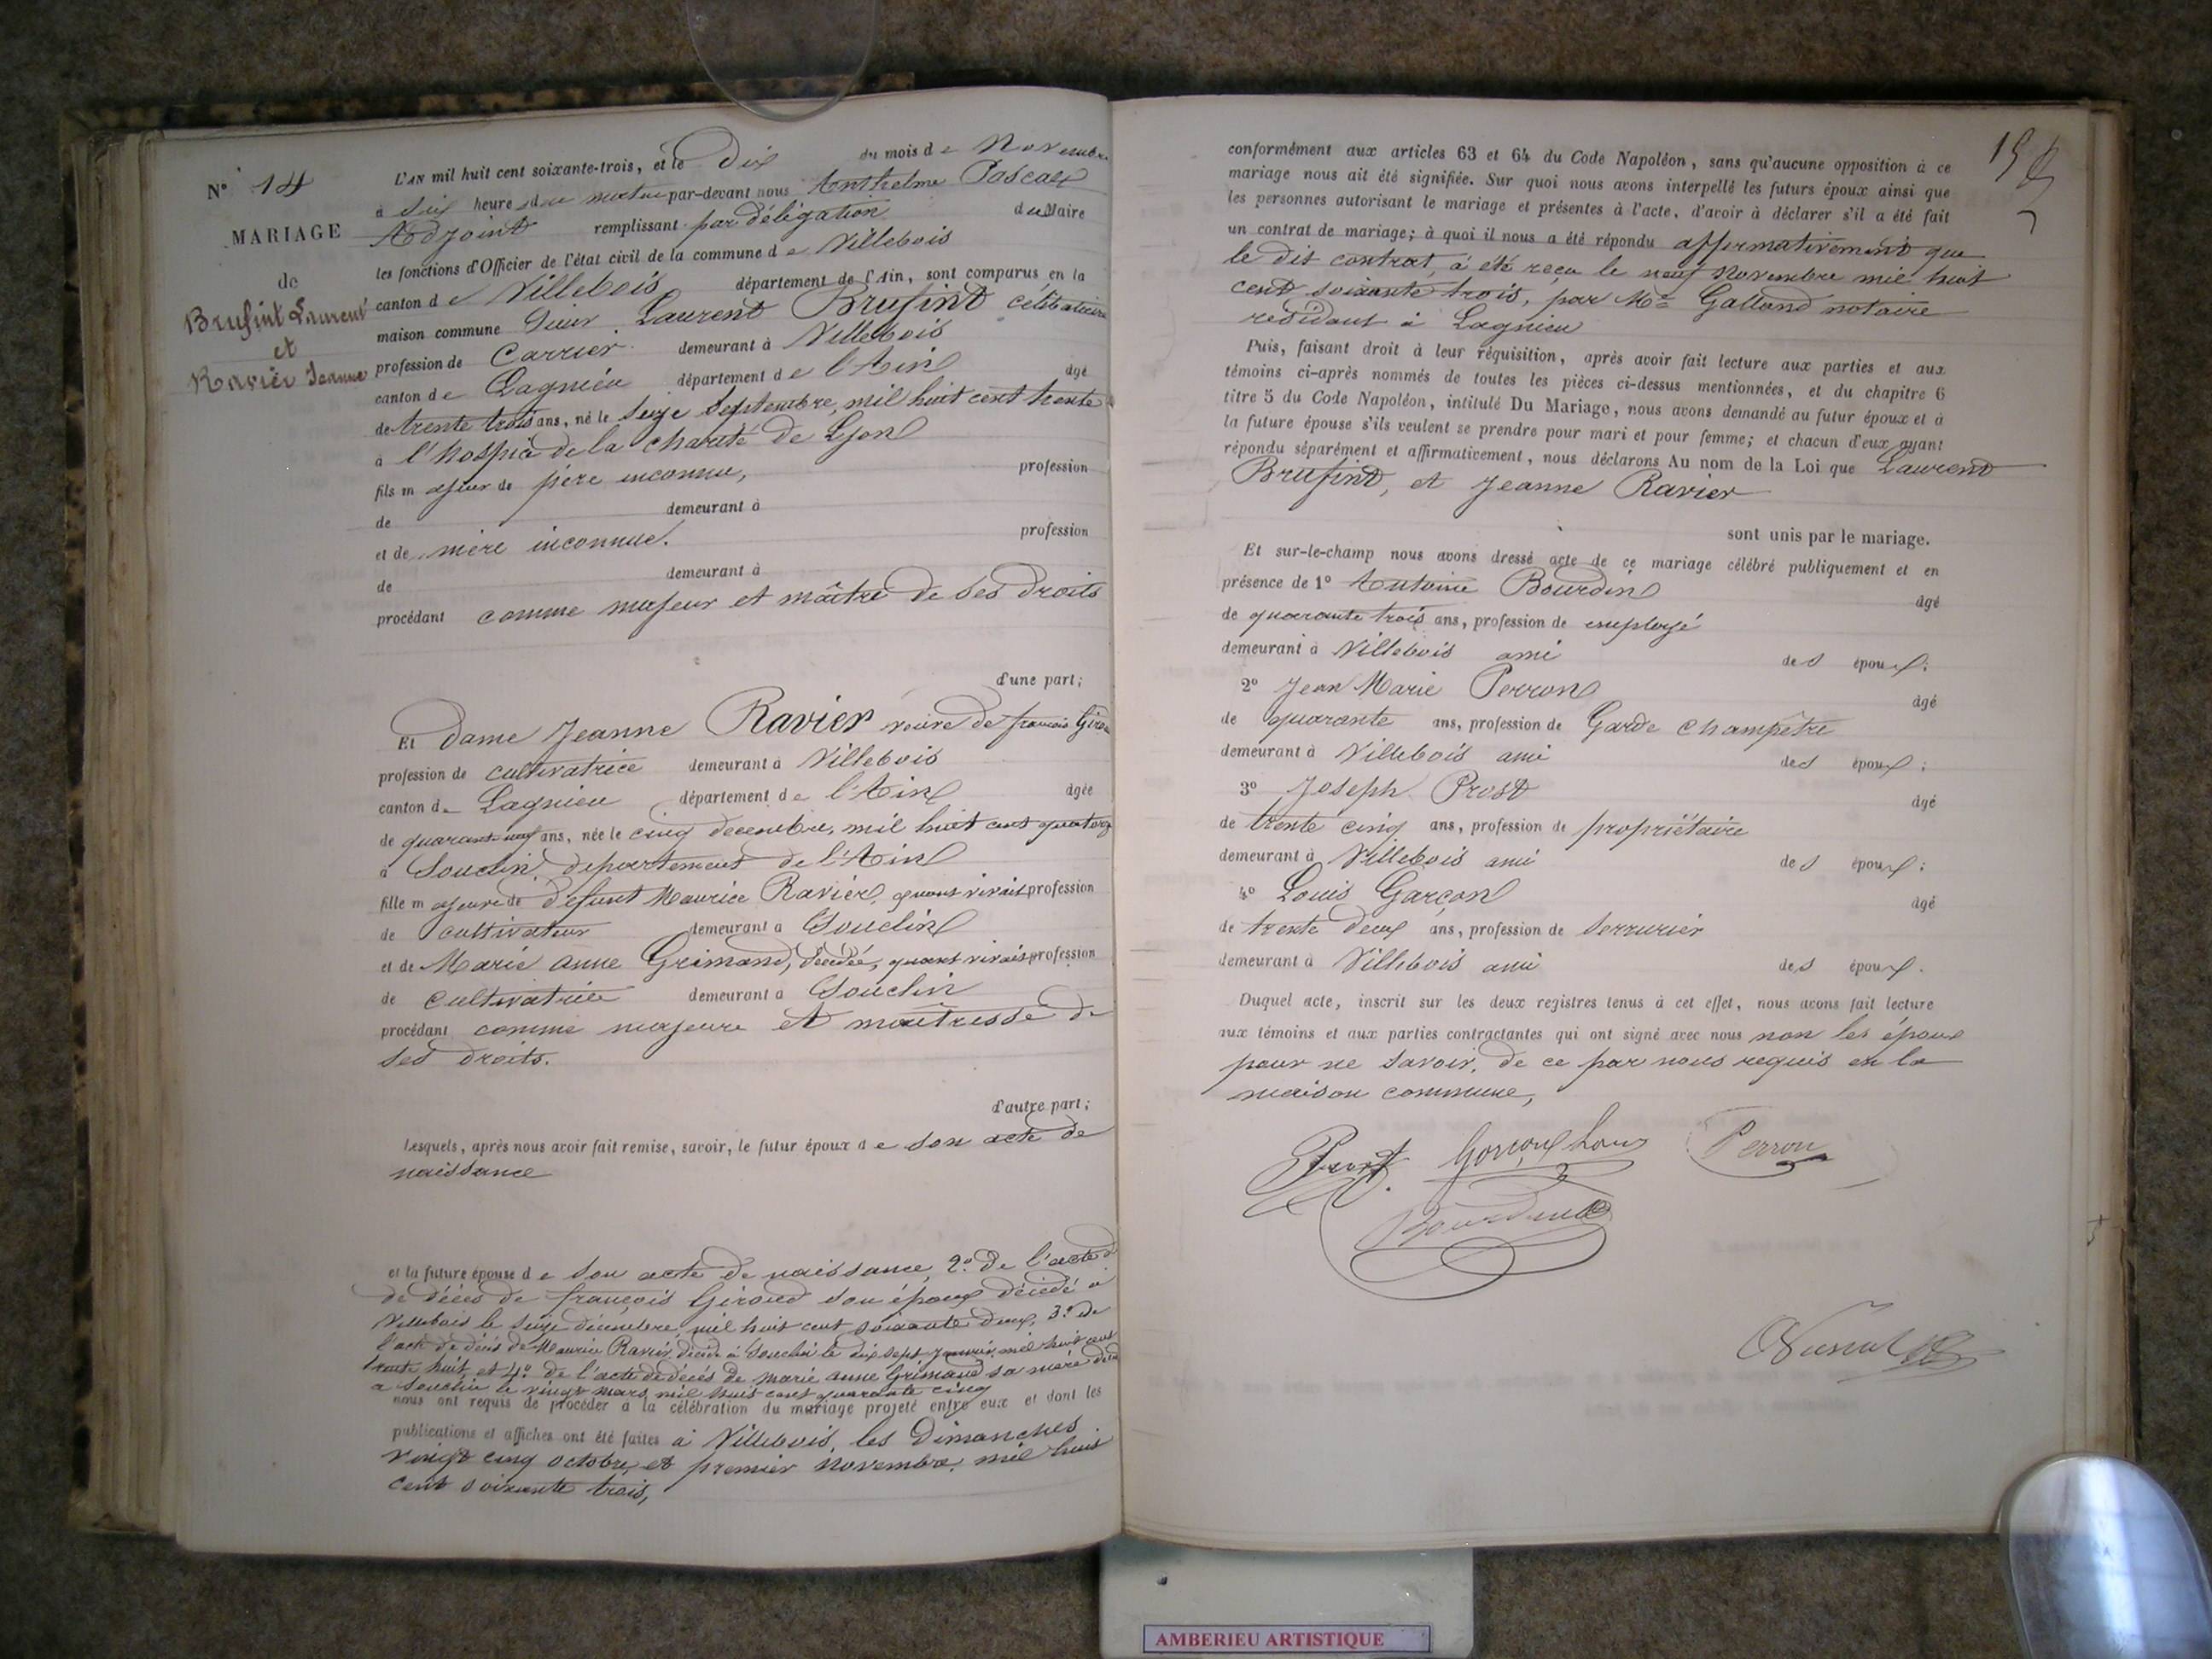 N° 14
MARIAGE
de
Brufint Laurent
et
Ravier Jeanne
L'AN mil huit cent soixante-trois, et le Dix du mois de Novembre
à six heures du matin par-devant nous Anthelme Pascal
Adjoint remplissant par délégation du Maire
les fonctions d'Officier de l'état civil de la commune de Villebois
canton de Villebois département de l'Ain, sont comparus en la
maison commune Sieur Laurent Brufint célibataire
profession de Carrier demeurant à Villebois
canton de Lagnieu département de l'Ain âgé
de trente trois ans, né le seize Septembre, mil huit cent trente
à l'hospice de la charité de Lyon
fils majeur de père inconnu, profession
de demeurant à
et de mère inconnue. profession
de demeurant à
procédant comme majeur et maître de ses droits
d'une part;
Et Dame Jeanne Ravier veuve de françois Giroud
profession de cultivatrice demeurant à Villebois
canton de Lagnieu département de l'Ain âgée
de quarante neuf ans, née le cinq decembre, mil huit cent quatorze
à Souclin, département de l'Ain
fille majeure de défunt Maurice Ravier, quant vivait profession
de cultivateur demeurant à Souclin
et de Marie anne Grimand, décédée, quant vivait profession
de cultivatrice demeurant à Souclin
procédant comme majeure et maîtresse de
ses droits.
d'autre part;
Lesquels, après nous avoir fait remise, savoir, le futur époux de son acte de
naissance
et la future épouse de son acte de naissance, 2° de l'acte
de décès de françois Giroud son époux décédé à
Villebois le seize décembre, mil huit cent soixante deux, 3° de
l'acte de décès de Maurice Ravier décédé à Souclin le dix sept janvier, mil huit cent
trente huit, et 4° de l'acte de décès de marie anne Grimand sa mère
à Souclin le vingt mars, mil huit cent quarante cinq
nous ont requis de procéder à la célébration du mariage projeté entre eux et dont les
publications et affiches ont été faites à Villebois, les Dimanches
vingt cinq octobre, et premier Novembre, mil huit
cent soixante trois,
conformément aux articles 63 et 64 du Code Napoléon, sans qu'aucune opposition à ce
mariage nous ait été signifiée. Sur quoi nous avons interpellé les futurs époux ainsi que
les personnes autorisant le mariage et présentes à l'acte, d'avoir à déclarer s'il a été fait
un contrat de mariage; à quoi il nous a été répondu affirmativement que
le dit contrat, a été reçu le neuf Novembre mil huit
cent soixante trois, par Me Galland notaire
residant à Lagnieu
Puis, faisant droit à leur réquisition, après avoir fait lecture aux parties et aux
témoins ci-après nommés de toutes les pièces ci-dessus mentionnées, et du chapitre 6
titre 5 du Code Napoléon, intitulé Du Mariage, nous avons demandé au futur époux et à
la future épouse s'ils veulent se prendre pour mari et pour femme; et chacun d'eux ayant
répondu séparément et affirmativement, nous déclarons Au nom de la Loi que Laurent
Brufint, et Jeanne Ravier
sont unis par le mariage.
Et sur-le-champ nous avons dressé acte de ce mariage célébré publiquement et en
présence de 1° Antoine Bourdin âgé
de quarante trois ans, profession de employé
demeurant à Villebois ami des époux;
2° Jean Marie Perron âgé
de quarante ans, profession de Garde champêtre
demeurant à Villebois ami des époux;
3° Joseph Prost âgé
de trente cinq ans, profession de propriétaire
demeurant à Villebois ami des époux;
4° Louis Garçon âgé
de trente deux ans, profession de serrurier
demeurant à Villebois ami des époux.
Duquel acte, inscrit sur les deux registres tenus à cet effet, nous avons fait lecture
aux témoins et aux parties contractantes qui ont signé avec nous non les époux
pour ne savoir, de ce par nous requis en la
maison commune,
Prost Garçon Louis Perron
Bourdin
AMBERIEU ARTISTIQUE